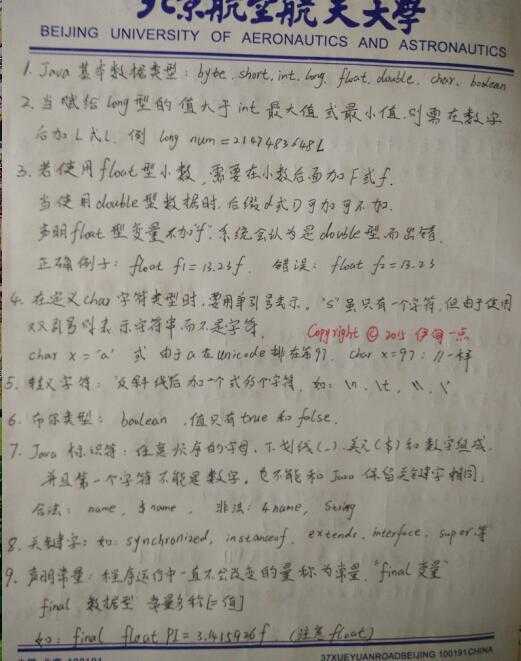 北京航空航天大學
BEIJING UNIVERSITY OF AERONAUTICS AND ASTRONAUTICS
1. Java 基本数据类型: byte. short. int. long. float. double. char. boolean
2. 当赋给 long 型的值大于 int 最大值或最小值, 则需在数字
后加 L 或 l. 例 long num = 2147483648L
3. 若使用 float 型小数, 需要在小数后面加 F 或 f.
当使用 double 型数据时, 后缀 d 或 D 可加可不加.
声明 float 型变量不加"f", 系统会认为是 double 型而出错.
正确例子: float f1 = 13.23f. 错误: float f2 = 13.23
4. 在定义 char 字符类型时, 要用单引号表示, "s"虽只有一个字符, 但由于使用
双引号则表示字符串而不是字符.
Copyright © 2015 伊甸一点
char x = 'a' 或 由于 a 在 unicode 排在第97, char x = 97; // 一样
5. 转义字符: 反斜线后加一个或多个字符, 如: \n. \t, \\. \'
6. 布尔类型: boolean, 值只有 true 和 false.
7. Java 标识符: 任意长度的字母, 下划线(_), 美元($) 和数字组成,
并且第一个字符不能是数字, 也不能和 Java 保留关键字相同,
合法: name, $name, 非法: 4name, String
8. 关键字: 如: synchronized, instanceof, extends, interface, super 等
9. 声明常量: 程序运行中一直不会改变的量称为常量, "final 变量"
final 数据型 常量名称[=值]
如: final float PI = 3.1415926f. (注意 float)
37XUEYUANROADBEIJING 100191 CHINA